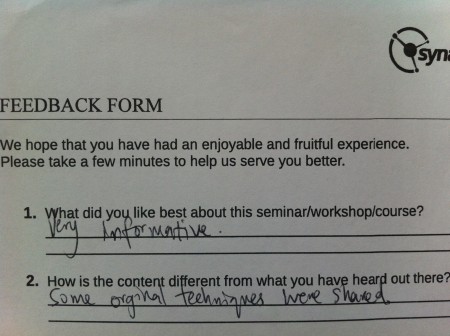 syna
FEEDBACK FORM
We hope that you have had an enjoyable and fruitful experience.
Please take a few minutes to help us serve you better.
1. What did you like best about this seminar/workshop/course?
Very Informative.
2. How is the content different from what you have heard out there?
Some orginal techniques were shared